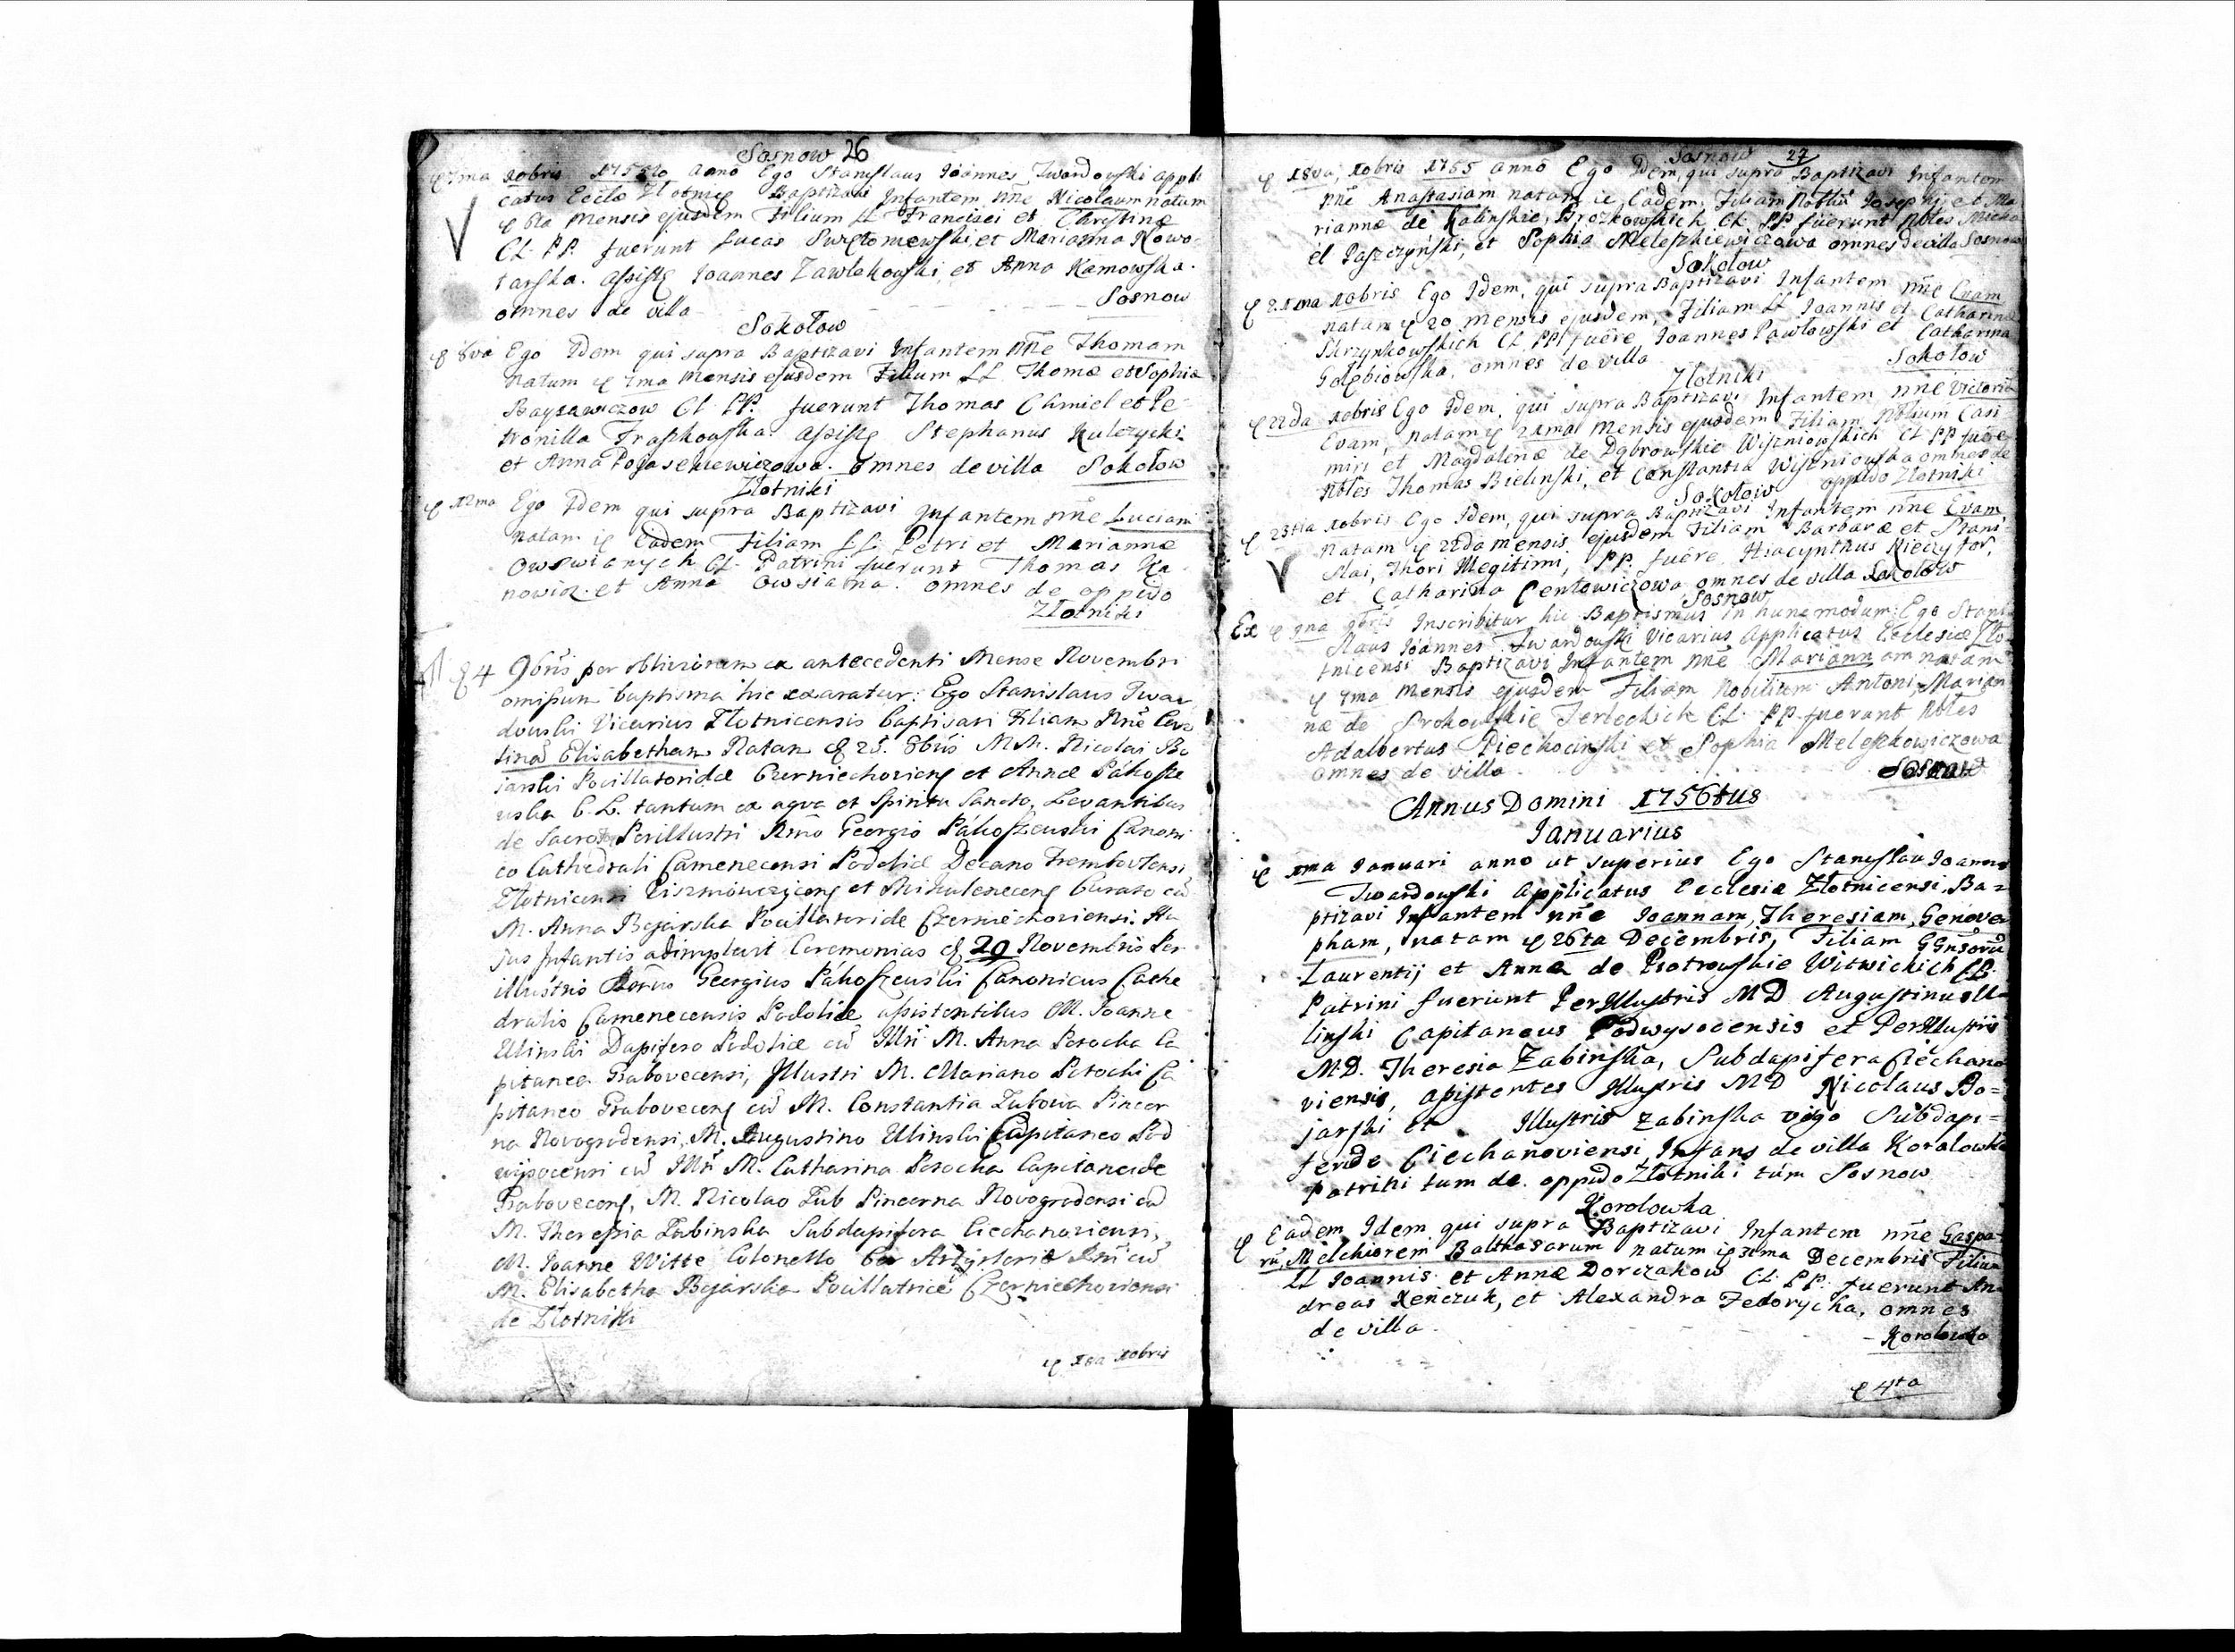 Sosnow 26
7ma xobris 1755to anno Ego Stanyslaus Ioannes Twardowski appli
catus Eccłæ Złotnicę Baptizavi Infantem nn̄e Nicolaum natum
6ta mensis ejusdem Filium LL Francisci et Christinæ
CL. PP. fuerunt Lucas et Marianna Nowo
tarska. Assistę Joannes Zawlakowski, et Anna Kamowska.
omnes de villa Sosnow
Sokołow
8va Ego Idem qui supra Baptizavi Infantem nn̄e Thomam
natum 7ma mensis ejusdem Filium LL Thomæ et Sophiæ
CL PP. fuerunt Thomas Chmiel et Pe
tronilla Fraszkowska. Assistę Stephanus Kulczycki
et Anna omnes de villa Sokołow
Złotniki
12ma Ego Idem qui supra Baptizavi Infantem nn̄e Luciam
natam Eadem Filiam LL. Petri et Mariannæ
CL. Patrini fuerunt Thomas Ka
nowicz et Anna Owsiana. omnes de oppido
Złotniki
4 9bris per oblivionem ex antecedenti Mense Novembri
omissum baptisma hic exaratur: Ego Stanislaus Twar
dowski Vicarius Złotnicensis baptisavi Filiam Nn̄e
Elisabetham Natam 25. 8bris M.M. Nicolai Bo
jarski et Annæ
C.L. tantum ex aqva et Spiritu Sancto, Levantibus
de Sacro Perillustri Rm̄o Georgio Canoni
co Cathedrali Camenecensi Podoliæ Decano Trembovlensi
Złotnicensi et Curato cū
M. Anna Bojarska Hu
jus Infantis adimplevit Ceremonias 29 Novembris Per
illustris Georgius Canonicus Cathe
dralis Camenecensis Podoliæ assistentibus M. Joanne
Ulinski Dapifero Podoliæ cū Illri M. Anna Potocka Ca
pitanea Grabovecensi, Illustri M. Mariano Potocki Ca
pitaneo Grabovecensi cū M. Constantia Pincer
na Novogrodensi, M. Augustino Ulinski Capitaneo Pod
wysocensi cū Illri M. Catharina Potocka Capitaneide
M. Nicolao Pincerna Novogrodensi cū
M. Theressia Żabinska Subdapifera Ciechanoviensi,
M. Joanne Witte Colonello cū
M. Elisabetha Bojarska Czerniechoviensi
de Złotniki
18va xobris
Sosnow 27
18va, xobris 1755 anno Ego Idem, qui supra Baptizavi Infantem
nn̄e Anastasiam natam Eadem, Filiam Nobiliū Josephi, et Ma
riannæ de Kalinskie, Brozkowskich CL. PP fuerunt Nobles Micha
el Paszczynski, et Sophia Meleszkiewiczowa omnes de villa Sosnow
Sokołow
21ma xobris Ego Idem, qui supra Baptizavi Infantem nn̄e Evam
natam 20 mensis ejusdem, Filiam LL Ioannis et Catharinæ
Skrzynkowskich CL PP fuêre Joannes Pawłowski et Catharina
Gołębiowska, omnes de villa Sokołow
Złotniki
22da xobris Ego Idem, qui supra Baptizavi Infantem nn̄e Victoriā
Evam, natam 21ma mensis ejusdem Filiam Nobilium Casi
miri et Magdalenæ de Dąbrowskie Wiszniowskich CL PP fuêre
Nobles Thomas Bielinski, et Constantia Wiszniowska omnes de
oppido Złotniki
Sokołow
23tia xobris Ego Idem, qui supra Baptizavi Infantem nn̄e Evam
natam 22da mensis ejusdem Filiam Barbaræ et Stani
slai, Thori Illegitimi, PP. fuêre Hiacynthus
et Catharina omnes de villa Sokołow
Sosnow
Ex 9na 9bris Inscribitur hic Baptismus in hunc modum: Ego Stani
slaus Ioannes Twardowski Vicarius Applicatus Ecclesiæ Zło
tnicensi Baptizavi Infantem nn̄e Mariannam natam
7ma mensis ejusdem Filiam Nobilium Antoni, Marian
næ de Srokowskie Terleckich CL. PP. fuerunt Nobles
Adalbertus Piechocinski et Sophia Meleszkowiczowa
omnes de villa Sosnow
Annus Domini 1756tus
Ianuarius
1ma Januari anno ut superius Ego Stanyslau Joannes
Twardowski Applicatus Ecclesiæ Złotnicensi, Ba=
ptizavi Infantem nn̄e Ioannam, Theresiam, Genove
pham, natam 26ta Decembris, Filiam GGnsorū
Laurentij et Annæ de Piotrowskie Witwickich CL.
Patrini fuerunt Perillustris MD Augustinus U
linski Capitaneus Podwysocensis et Perillustris
MD. Theresia Zabinska, Subdapifera Ciechano
viensis, assistentes Illustris MD Nicolaus Bo=
jarski et Illustris Zabinska virgo Subdapi=
feride Ciechanoviensi, Infans de villa Korolowka
patrini tum de oppido Złotniki túm Sosnow
Korolowka
Eadem Idem qui supra Baptizavi Infantem nn̄e Gaspa
rū, Melchiorem Balthasarum natum 31ma Decembris Filium
LL Joannis et Annæ Dorczakow CL. PP. fuerunt An
dreas Xenczuk, et Alexandra Fedorycha, omnes
de villa Korolowka
4ta